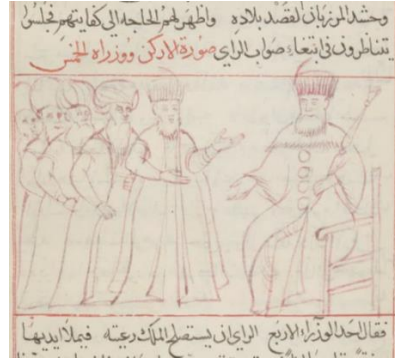 وحشد المرزبان لقصد بلاده واظهر لهم الحاجه الى كفايتهم فجلسوا
يتناظرون فى ابتغاء صواب الراى صورة الاركن ووزراه الخمس
فقال احد الوزراء الاربع الراى ان يستصلح الملك رعيته فيملا ايديها